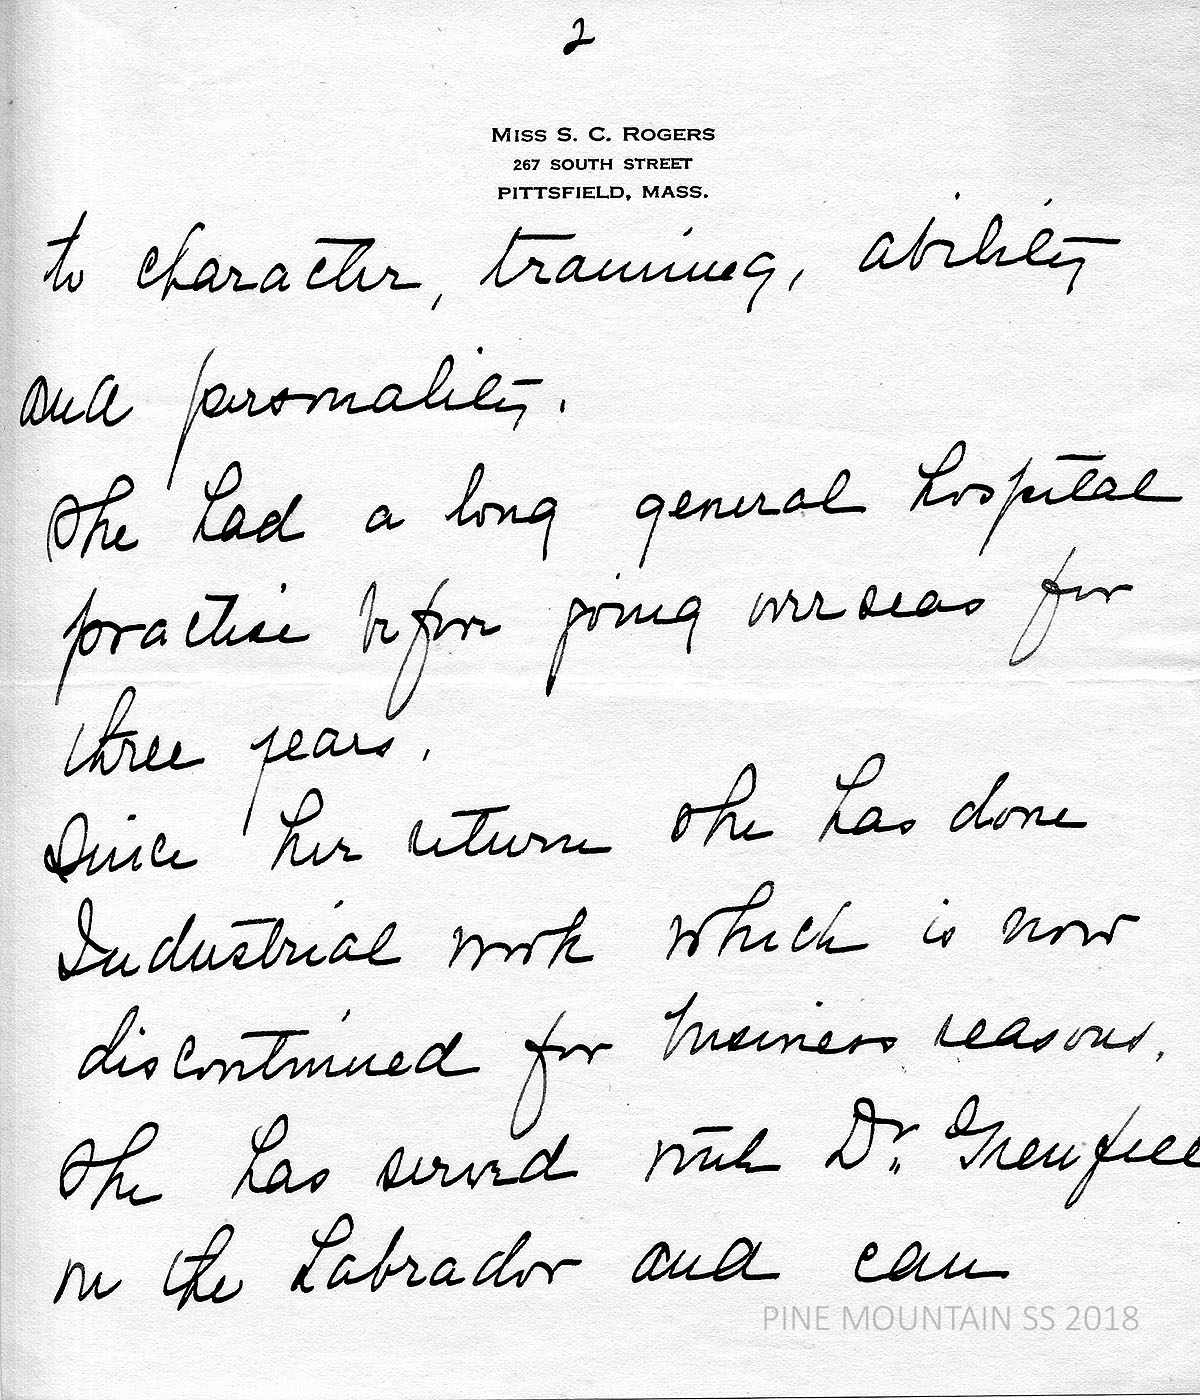 2
MISS S. C. ROGERS
267 SOUTH STREET
PITTSFIELD, MASS.
to character, training, ability
and personality.
She had a long general hospital
practise before going overseas for
three years.
Since her return she has done
Industrial work which is now
discontinued for business reasons.
She has served with Dr. Grenfell
on the Labrador and can
PINE MOUNTAIN SS 2018